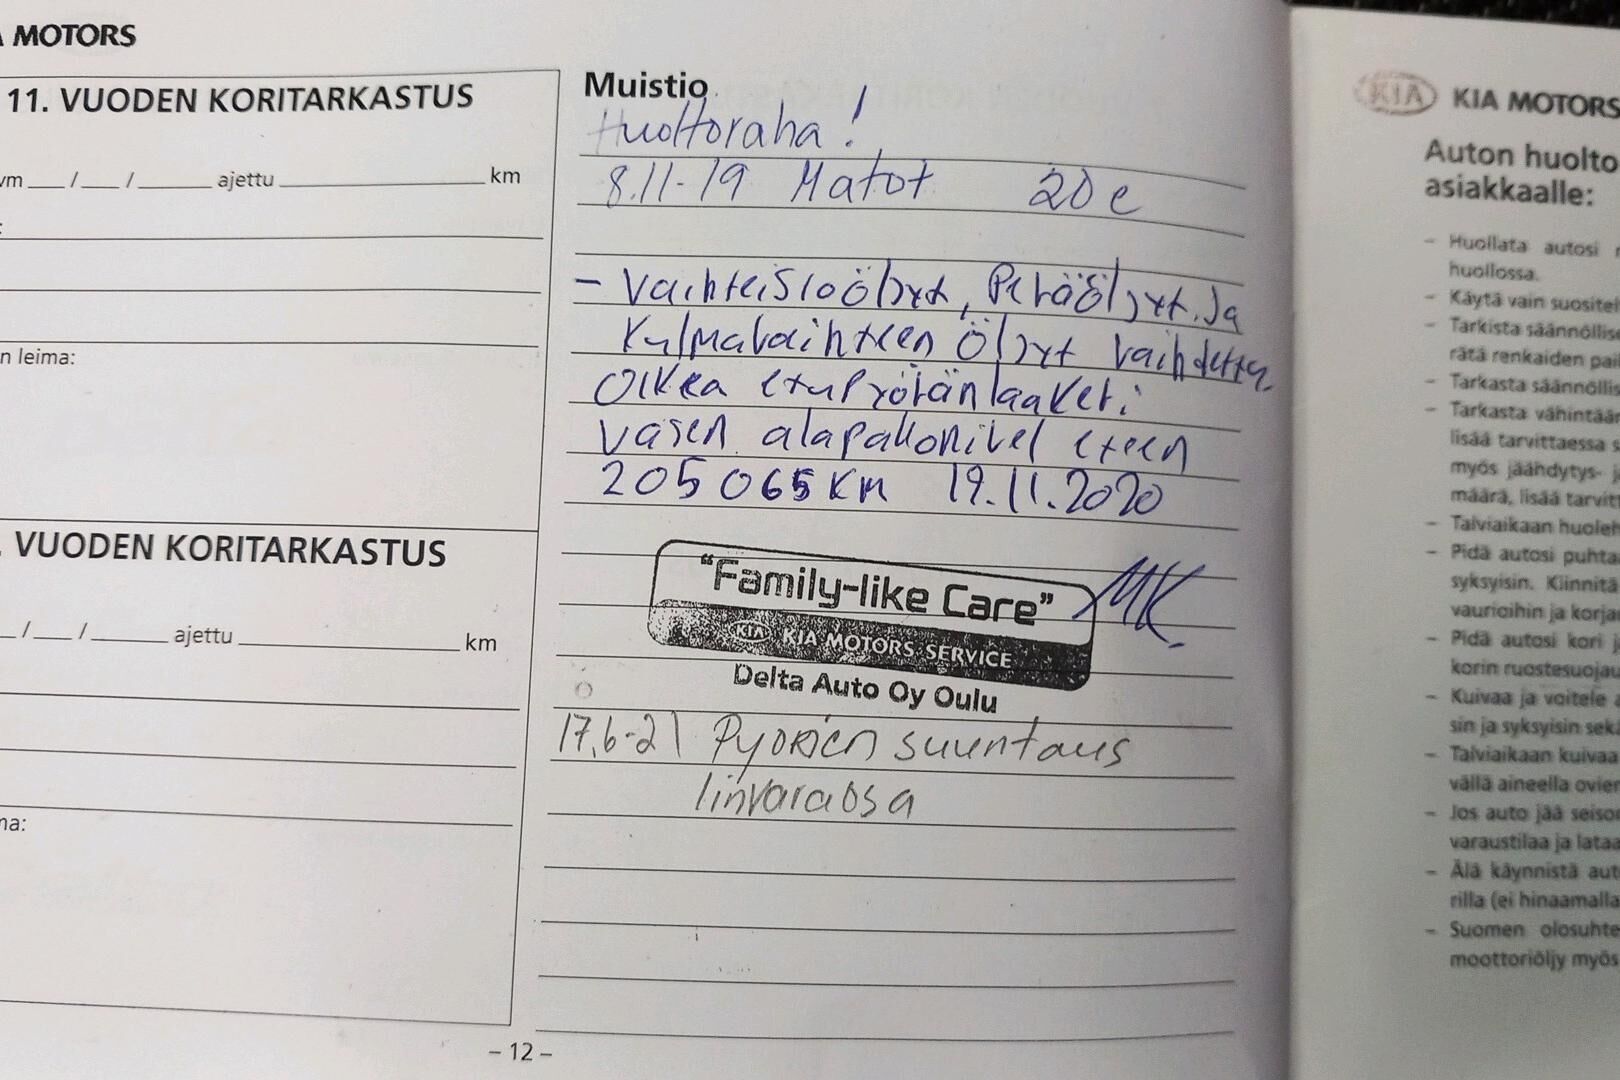 MOTORS
11. VUODEN KORITARKASTUS
vm ___ / ___ / ______ ajettu ____________ km
n leima:
VUODEN KORITARKASTUS
/ ___ / ______ ajettu ____________ km
ma:
Muistio
Huoltoraha!
8.11-19 Matot 20e
- Vaihteistoöljyt, Peräöljyt. Ja
Kulmavaihteen Öljyt vaihdettu
Oikea etupyöränlaakeri
Vasen alapallonivel eteen
205 065 KM 19.11.2020
MK
"Family-like Care"
KIA KIA MOTORS SERVICE
Delta Auto Oy Oulu
17.6-21 Pyörien suuntaus
Iinvaraosa
– 12 –
KIA KIA MOTORS
Auton huolto
asiakkaalle:
– Huollata autosi
huollossa.
– Käytä vain suositel
– Tarkista säännöllise
rätä renkaiden pai
– Tarkasta säännöllis
– Tarkasta vähintään
lisää tarvittaessa s
myös jäähdytys- j
määrä, lisää tarvitt
– Talviaikaan huoleh
– Pidä autosi puhta
syksyisin. Kiinnitä
vaurioihin ja korja
– Pidä autosi kori j
korin ruostesuojau
– Kuivaa ja voitele
sin ja syksyisin sekä
– Talviaikaan kuivaa
vällä aineella ovien
– Jos auto jää seiso
varaustilaa ja lataa
– Älä käynnistä aut
rilla (ei hinaamalla
– Suomen olosuhte
moottoriöljy myös